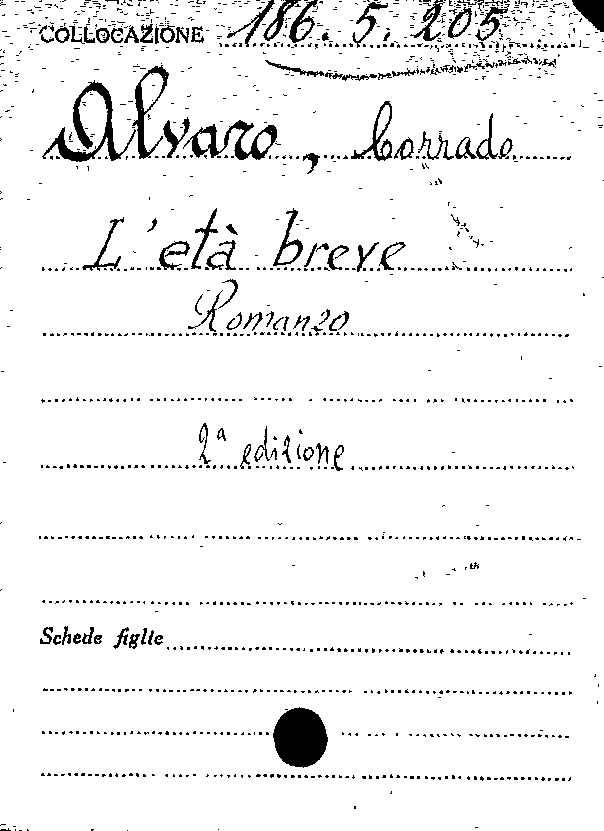 COLLOCAZIONE 186.5.205
Alvaro, Corrado
L'età breve
Romanzo
2ª edizione
Schede figlie